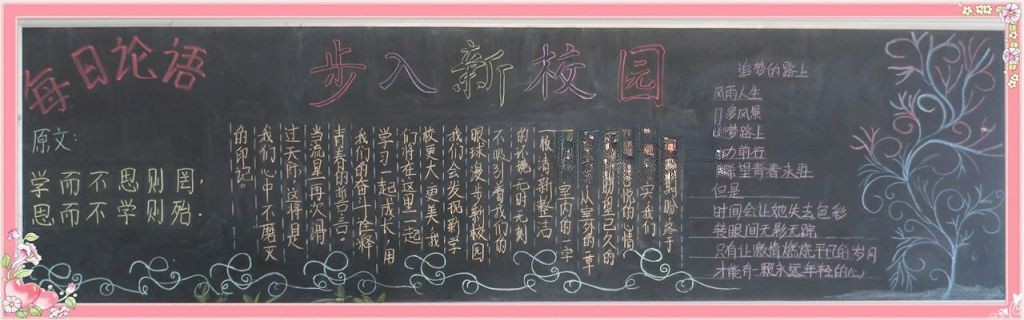 每日论语
原文:
学而不思则罔.
思而不学则殆.
步入新校园
期盼终于
实,我们
的心情
盼望已久的
从室外的一草
室内的一字
一板清新,整洁
的环境无时无刻
不吸引着我们的
眼球,漫步新校园
我们会发现,新学
校更大,更美,我
们将在这里一起
学习一起成长,用
我们的奋斗诠释
青春的誓言。
当流星再次滑
过天际,这将是
我们心中不磨灭
的印记。
追梦的路上
风雨人生
多风景
梦路上
力前行
希望青春永驻
但是
时间会让她失去色彩
转眼间无影无踪
只有让激情燃烧平凡的岁月
才能有一颗永远年轻的心